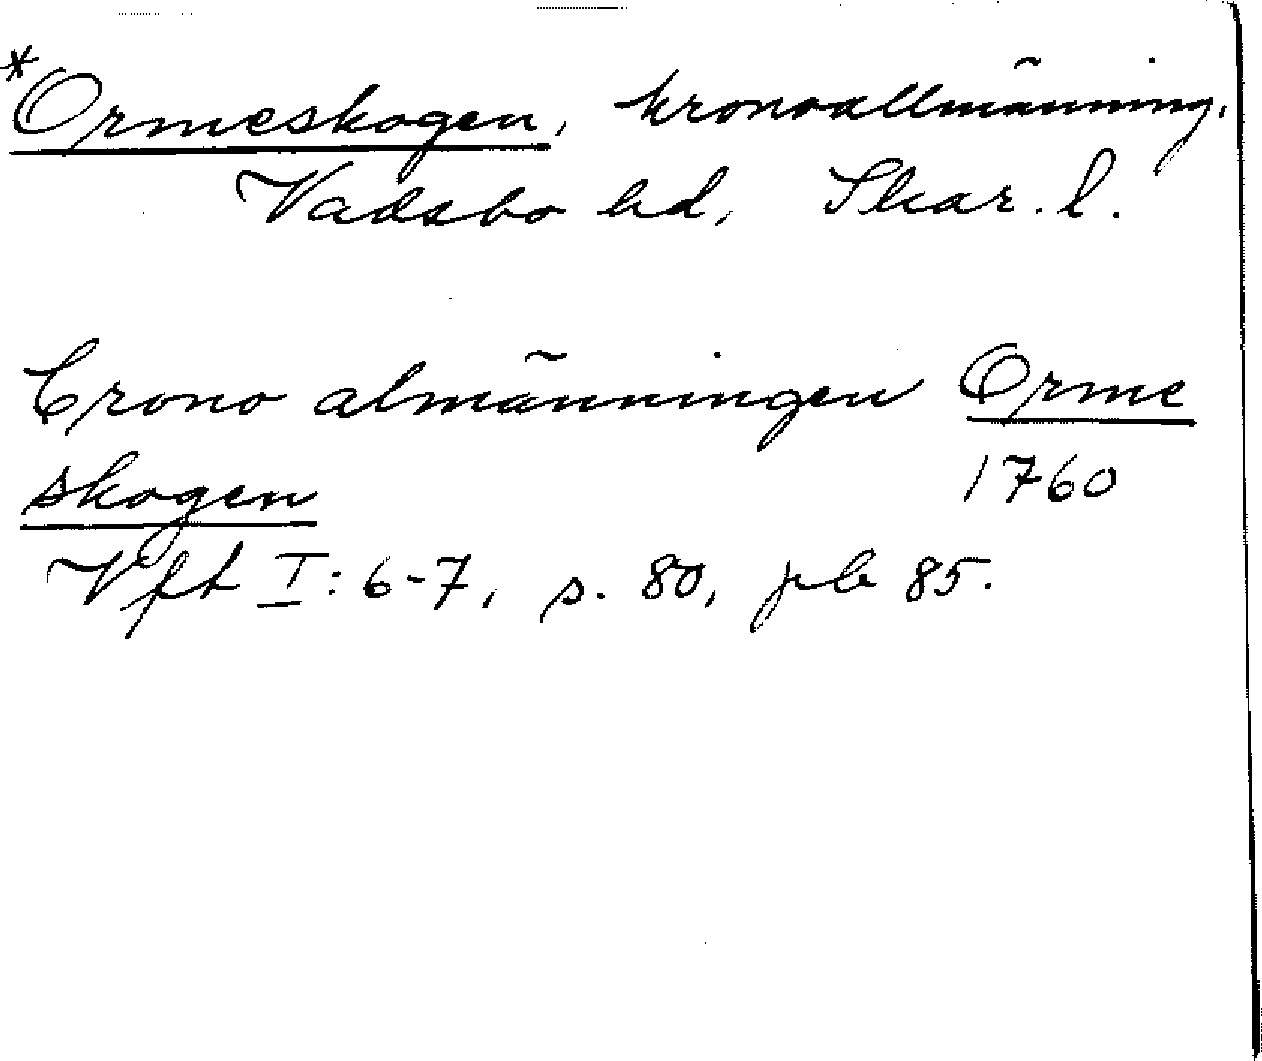 *Ormeskogen, kronoallmänning,
Vadsbo hd, Skar. l.
Crono almänningen Orme
skogen 1760
Vft I: 6-7, s. 80, pb 85.